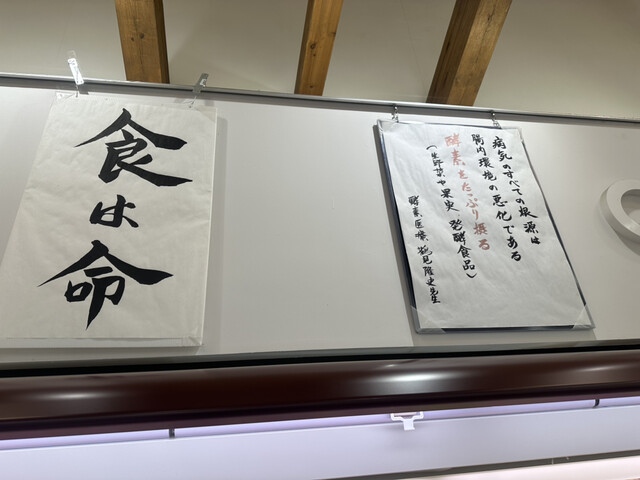 食は命
病気のすべての根源は
腸内環境の悪化である
酵素をたっぷり摂る
(生野菜や果実、発酵食品)
酵素医療 鶴見隆史先生